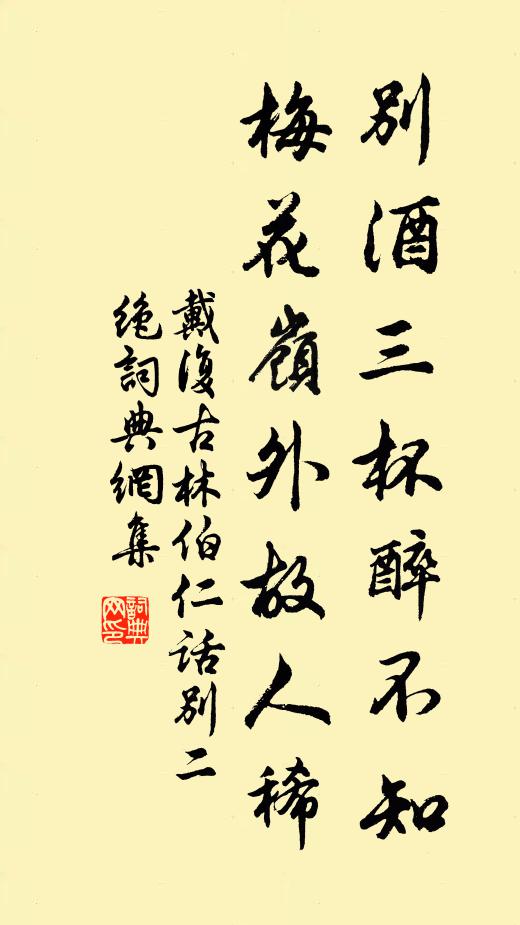 別酒三杯醉不知
梅花嶺外故人稀
戴復古林伯仁話別二
絕詞典網集
詞典
网印